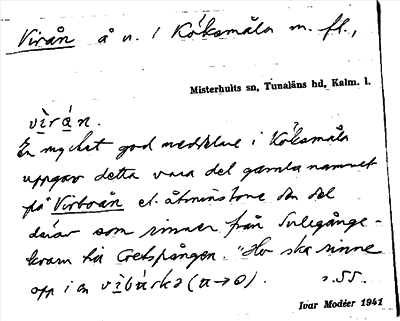 Virån å n. i Köksmåla m. fl.,
Misterhults sn, Tunaläns hd, Kalm. l.
virån.
En mycket god meddelare i Köksmåla
uppgav detta vara det gamla namnet
på Virboån el. åtminstone den del
därav som rinner från
kvarn till "Ho ska rinne
opp i en (u→o). s. 55.
Ivar Modéer 1941